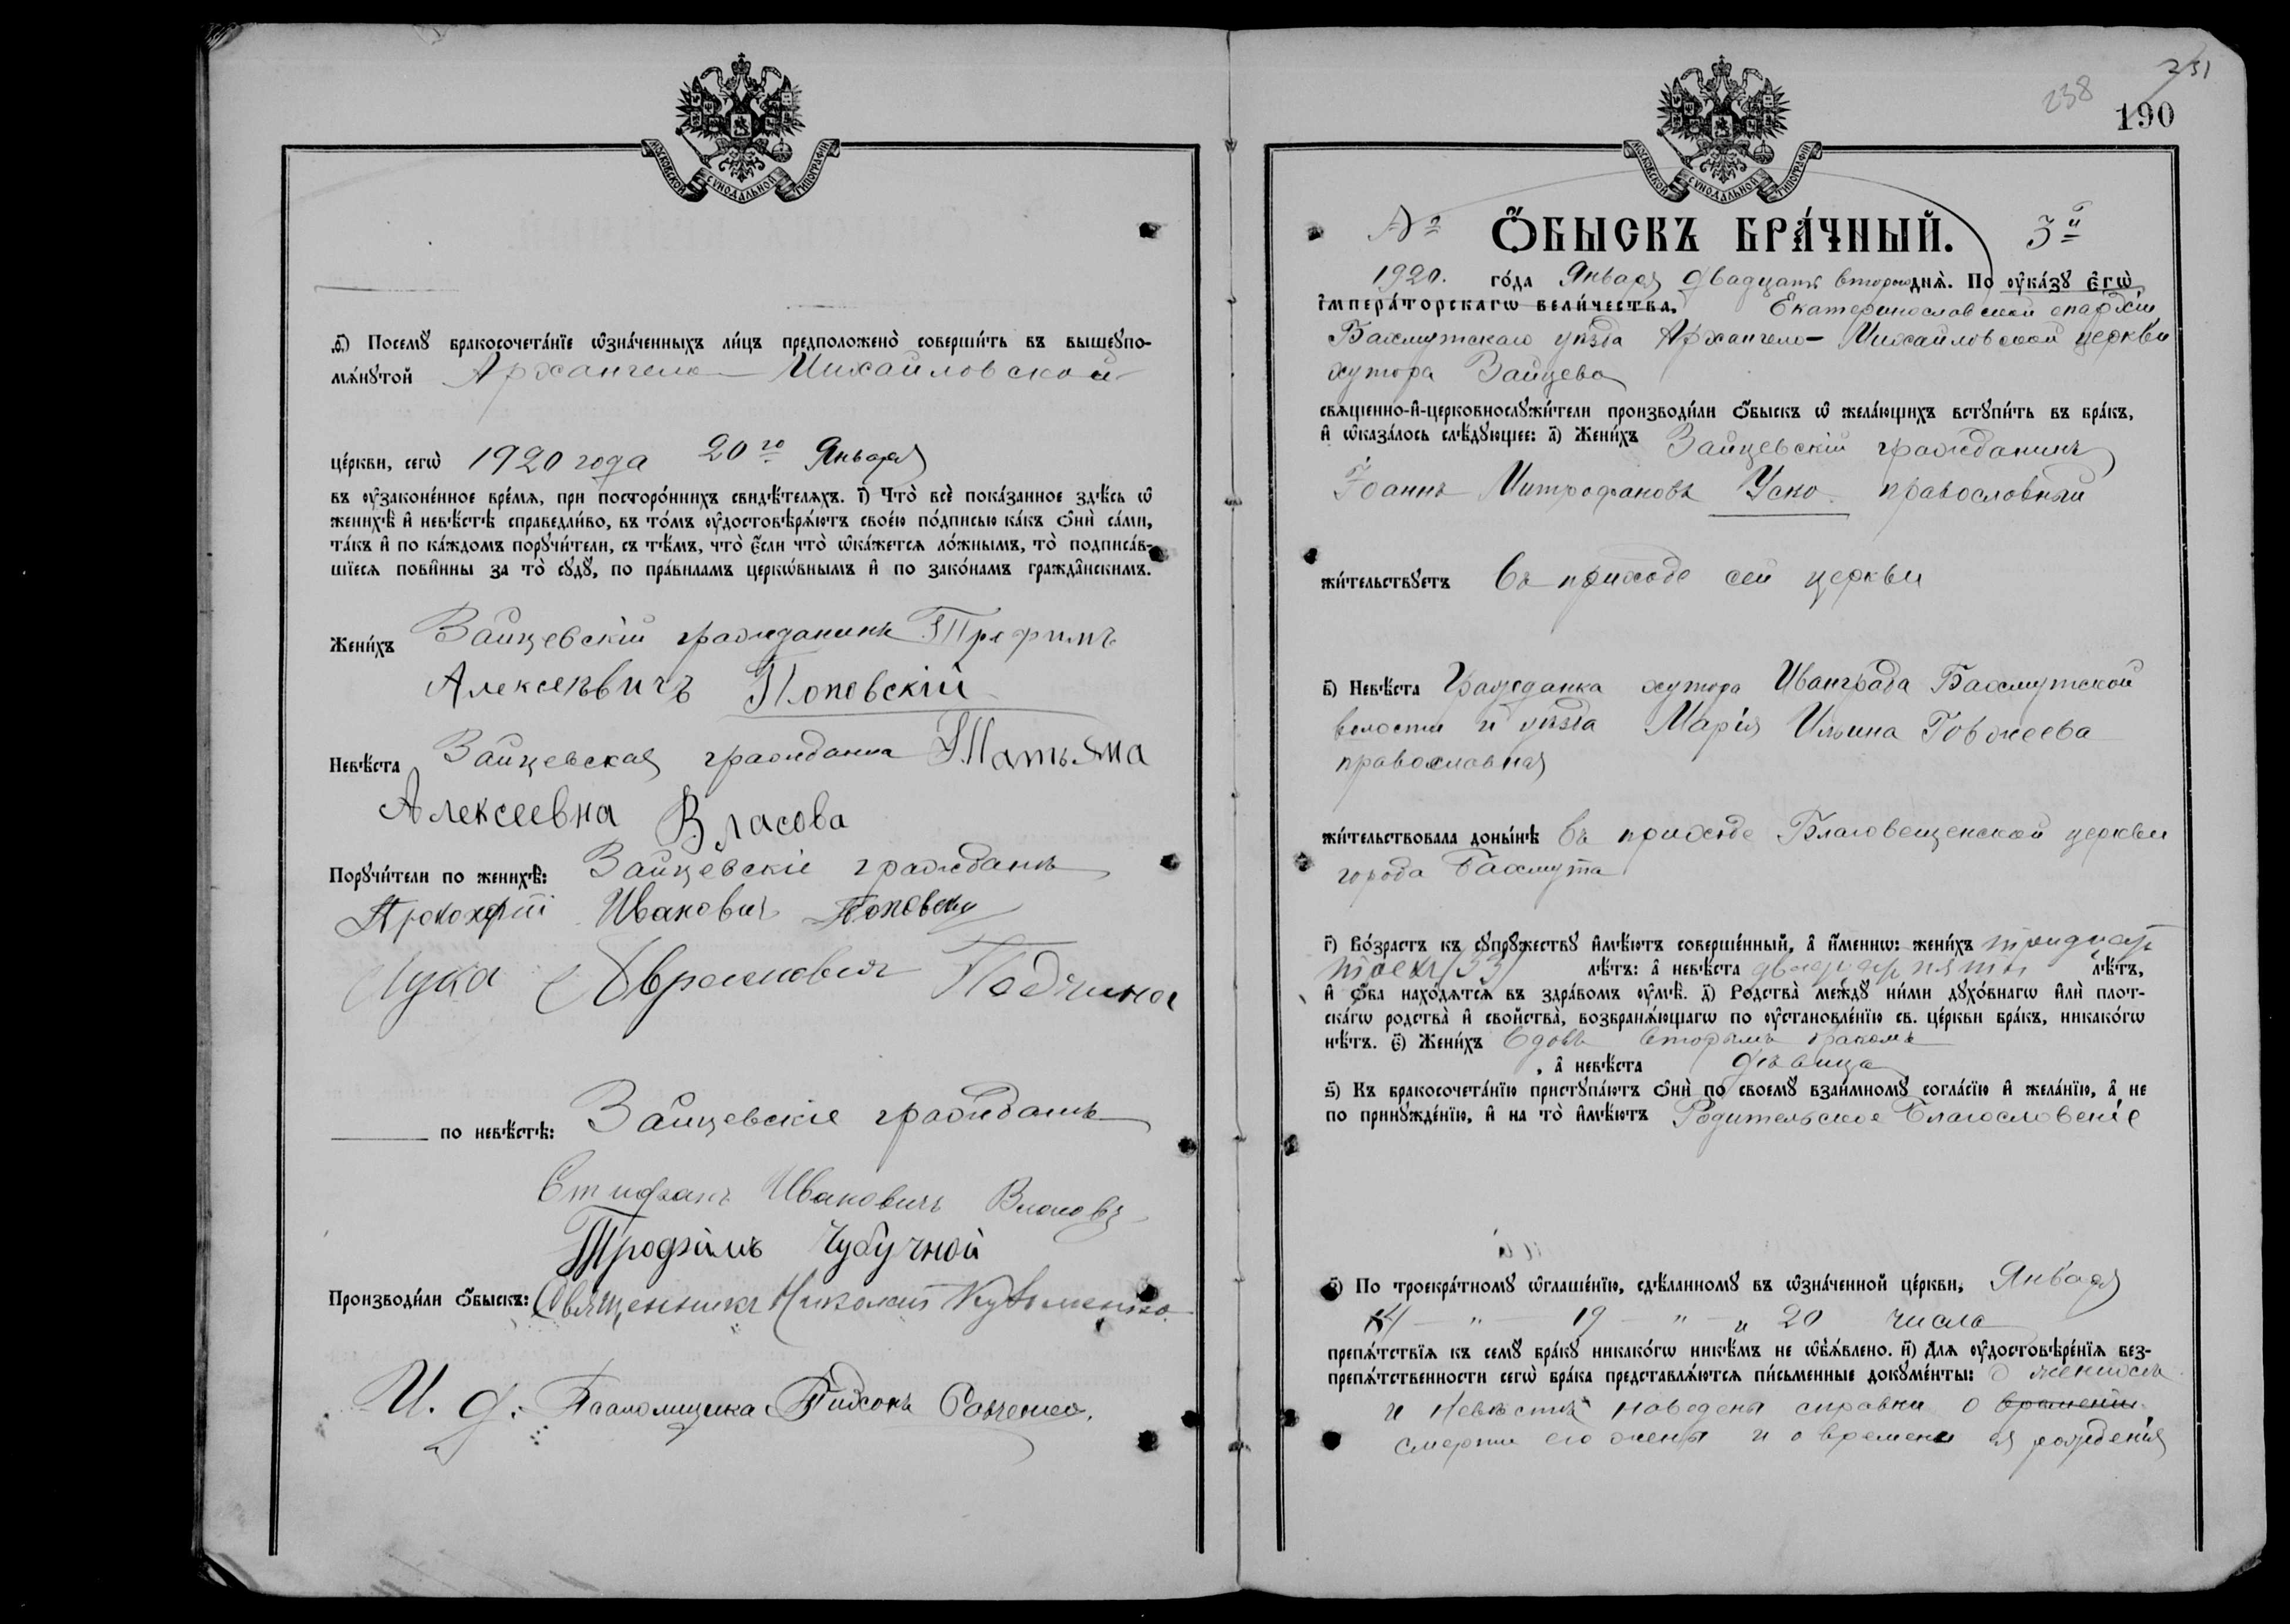 МОСКОВСКОЙ СѴНОДАЛЬНОЙ ТИПОГРАФІИ
ѳ҃) Посемꙋ̀ бракосочета́нїе ѡ҆зна́ченныхъ ли́цъ предположено̀ соверши́ть въ вышеꙋпо-
мѧ́нꙋтой Архангело-Михайловской
це́ркви, сегѡ̀ 1920 года 20го Января
въ ᲂу҆законе́нное вре́мѧ, при посторо́ннихъ свидѣ́телѧхъ. і҃) Что̀ всѐ пока́занное здѣ́сь ѡ҆
женихѣ̀ и҆ невѣ́стѣ справедли́во, въ то́мъ ᲂу҆достовѣрѧ́ютъ свое́ю по́дписью ка́къ ѻ҆нѝ са́ми,
та́къ и҆ по ка́ждомъ порꙋчи́тели, съ тѣ́мъ, что̀ є҆́сли что̀ ѡ҆ка́жетсѧ ло́жнымъ, то̀ подписа́в-
шїесѧ пови́нны за то̀ сꙋдꙋ̀, по пра́виламъ церкѡ́внымъ и҆ по зако́намъ гражда́нскимъ.
Жени́хъ Зайцевскій гражданинъ Трофимъ
Алексѣевичъ Поповскій
Невѣ́ста Зайцевская гражданка Татьяна
Алексеевна Власова
Порꙋчи́тели по женихѣ̀: Зайцевскіе граждане
Прокофій Ивановичъ Поповскій
Лука
по невѣ́стѣ: Зайцевскіе граждане
Стифанъ Ивановичъ Власовъ
Трофимъ Чубучной
Производи́ли ѻ҆́быскъ: Священникъ Николай Кузьменко
И. д. Псаломщика
231
238
190
МОСКОВСКОЙ СѴНОДАЛЬНОЙ ТИПОГРАФІИ
№ Ѻ҆́БЫСКЪ БРА́ЧНЫЙ. 3й
1920. го́да Января двадцать второго днѧ̀. По ᲂу҆ка́зꙋ є҆гѡ̀
і҆мпера́торскагѡ вели́чества. Екатеринославской епархіи
Бахмутскаго уѣзда Архангело-Михайловской церкви
хутора Зайцева
свѧще́нно-и҆-церковнослꙋжи́тели производи́ли ѻ҆́быскъ ѡ҆ жела́ющихъ встꙋпи́ть въ бра́къ,
и҆ ѡ҆каза́лось слѣ́дꙋющее: а҃) Жени́хъ Зайцевскій гражданинъ
Іоаннъ Митрофановъ Уско православный
жи́тельствꙋетъ въ приходе сей церкви
в҃) Невѣ́ста Гражданка хутора Иванграда Бахмутской
волости и уѣзда Марія Ильина Говжеева
православная
жи́тельствовала доны́нѣ въ приходе Благовещенской церкви
города Бахмута
г҃) Во́зрастъ къ сꙋпрꙋ́жествꙋ и҆мѣ́ютъ соверше́нный, а҆ и҆́меннѡ: жени́хъ тридцать
трехъ /33/ лѣ́тъ: а҆ невѣ́ста двадцать пять лѣ́тъ,
и҆ ѻ҆́ба нахо́дѧтсѧ въ здра́вомъ ᲂу҆мѣ̀. д҃) Родства̀ междꙋ̀ ни́ми дꙋхо́внагѡ и҆лѝ плот-
ска́гѡ родства̀ и҆ свойства̀, возбранѧ́ющагѡ по ᲂу҆становле́нїю св. це́ркви бра́къ, никако́гѡ
нѣ́тъ. є҃) Жени́хъ вдовъ вторымъ бракомъ
, а҆ невѣ́ста дѣвица
ѕ҃) Къ бракосочета́нїю пристꙋпа́ютъ ѻ҆нѝ по своемꙋ̀ взаи́мномꙋ согла́сїю и҆ жела́нїю, а҆ не
по принꙋжде́нїю, и҆ на то̀ и҆мѣ́ютъ Родительское Благословеніе
з҃) По троекра́тномꙋ ѡ҆глаше́нїю, сдѣ́ланномꙋ въ ѡ҆зна́ченной це́ркви, Января
14 — " — 19 — " — " 20 числа
препѧ́тствїѧ къ семꙋ̀ бра́кꙋ никако́гѡ никѣ́мъ не ѡ҆б̾ѧ́влено. и҃) Длѧ ᲂу҆достовѣре́нїѧ без-
препѧ́тственности сегѡ̀ бра́ка представлѧ́ютсѧ пи́сьменные докꙋме́нты: о женихѣ
и невѣстѣ наведены справки о времени
смерти его жены и о времени ея рожденія